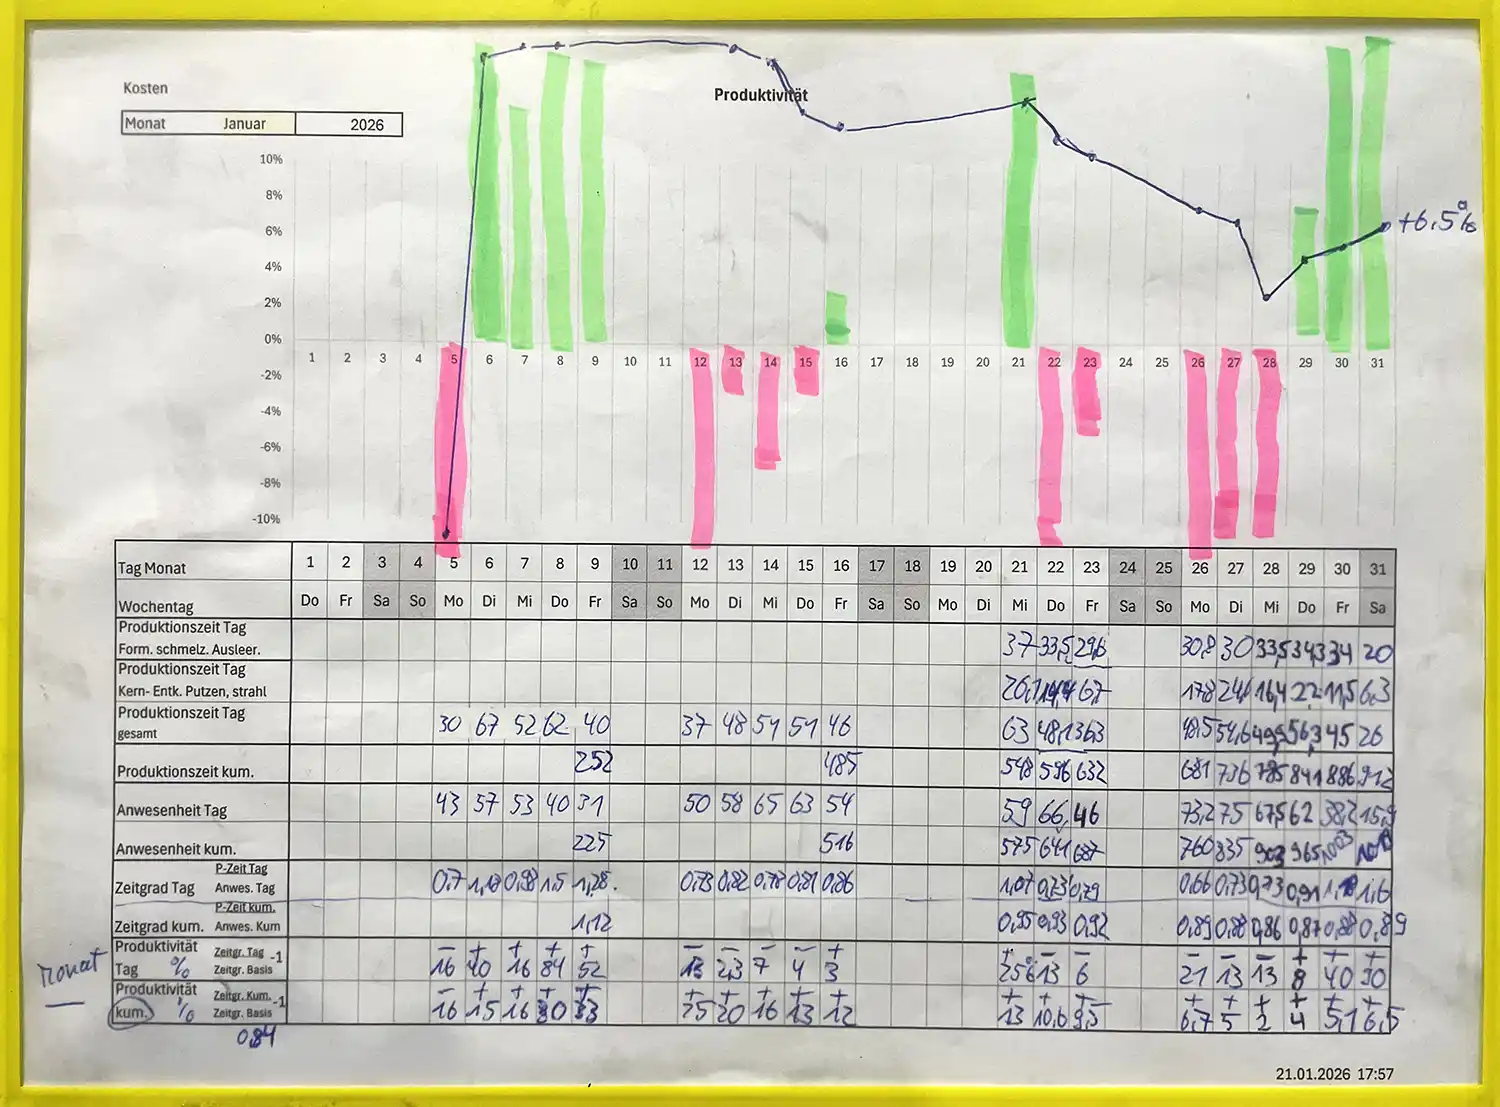 Kosten
Produktivität
Monat Januar 2026
10%
8%
6%
+6,5%
4%
2%
0%
1 2 3 4 5 6 7 8 9 10 11 12 13 14 15 16 17 18 19 20 21 22 23 24 25 26 27 28 29 30 31
-2%
-4%
-6%
-8%
-10%
Tag Monat 1 2 3 4 5 6 7 8 9 10 11 12 13 14 15 16 17 18 19 20 21 22 23 24 25 26 27 28 29 30 31
Wochentag Do Fr Sa So Mo Di Mi Do Fr Sa So Mo Di Mi Do Fr Sa So Mo Di Mi Do Fr Sa So Mo Di Mi Do Fr Sa
Produktionszeit Tag
Form. schmelz. Ausleer. 37 33,5 29,6 30,8 30 33,5 34,3 34 20
Produktionszeit Tag
Kern- Entk. Putzen, strahl 26,1 6,7 17,8 24,6 16,4 22 11,5 6,3
Produktionszeit Tag
gesamt 30 67 52 62 40 37 48 51 51 46 63 48,1 36,3 48,5 54,6 49,9 56,3 45 26
Produktionszeit kum. 252 485 548 596 632 681 736 785 841 886 912
Anwesenheit Tag 43 57 53 40 31 50 58 65 63 54 59 66 46 73,2 75 67,5 62 38,2 15,9
Anwesenheit kum. 225 516 575 641 687 760 835 903 965 1003
P-Zeit Tag
Zeitgrad Tag Anwes. Tag 0,7 1,18 0,98 1,5 1,28 0,73 0,82 0,78 0,81 0,86 1,07 0,73 0,79 0,66 0,73 0,73 0,91 1,18 1,6
P-Zeit kum.
Zeitgrad kum. Anwes. Kum 1,12 0,95 0,93 0,92 0,89 0,88 0,86 0,87 0,88 0,89
Monat
Produktivität Zeitgr. Tag -1
Tag % Zeitgr. Basis -16 +40 +16 +84 +52 -13 -2,3 -7 -4 +3 +25,6 -13 -6 -21 -13 -13 +8 +40 +90
Produktivität Zeitgr. Kum. -1
kum. % Zeitgr. Basis -16 +15 +16 +30 +33 +25 +20 +16 +13 +12 +13 +10,6 +9,5 +6,7 +5 +2 +4 +5,1 +6,5
0,84
21.01.2026 17:57